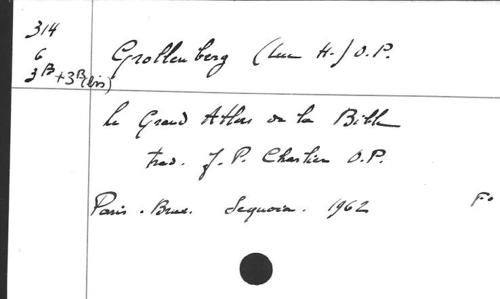 314
6
3B + 3B(bis)
Grollenberg (Luc H.) O.P.
le Grand Atlas de la Bible
trad. J. P. Charlier O.P.
Paris. Brux. Sequoia. 1962 Fo